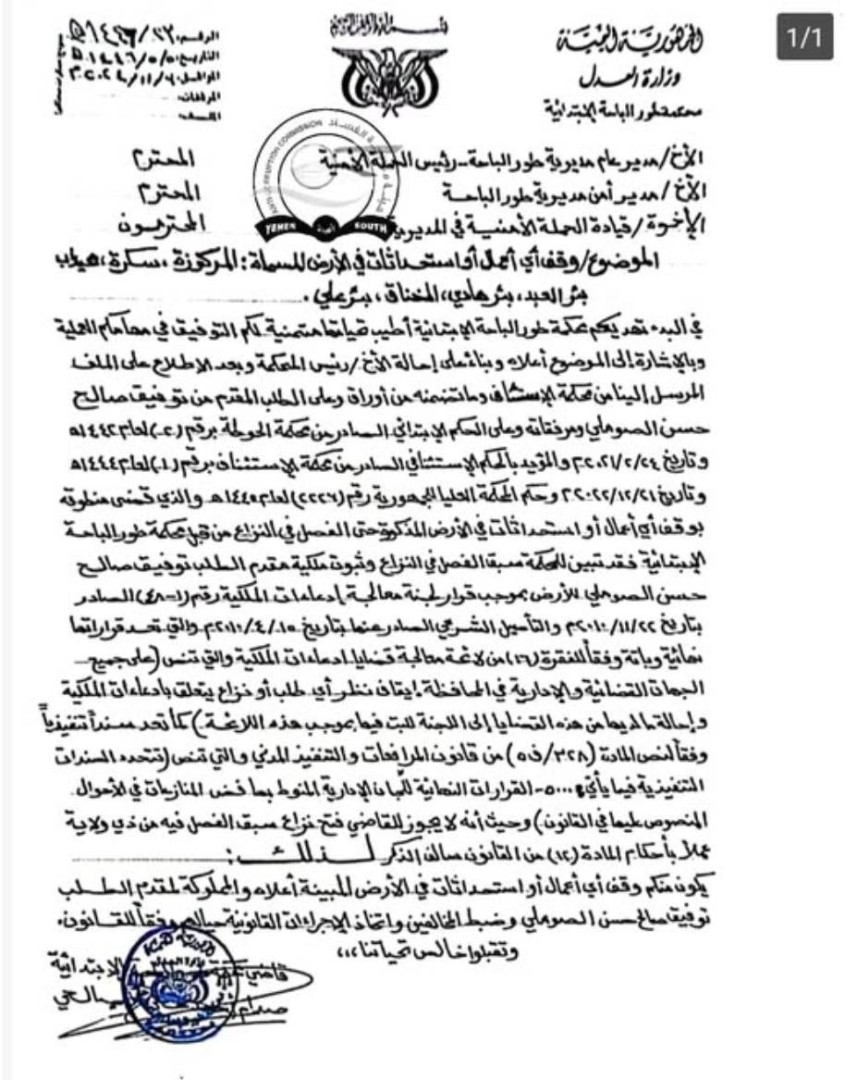 1/1
الجمهورية اليمنية
وزارة العدل
محكمة طور الباحة الإبتدائية
الرقم:
التاريخ: ١٤٤٦/٥/٥هـ
الموافق: ٢٠٢٤/١١/٦م
المرفقات:
الأخ/ مدير عام مديرية طور الباحة-رئيس الحملة الأمنية المحترم
الأخ/ مدير أمن مديرية طور الباحة المحترم
الإخوة/ قيادة الحملة الأمنية في المديرية المحترمون
ANTI-CORRUPTION COMMISSION
YEMEN SOUTH
الموضوع/ وقف أي أعمال أو استحداثات في الأرض المسماة: المركوزة، سكرة،
بئر العبد، بئر هادي، المخناق، بئر علي.
في البدء تهديكم محكمة طور الباحة الإبتدائية أطيب تحياتها متمنية لكم التوفيق في مهامكم العملية
وبالإشارة إلى الموضوع أعلاه وبناءً على إحالة الأخ/ رئيس المحكمة وبعد الإطلاع على الملف
المرسل إلينا من محكمة الإستئناف وما تضمنه من أوراق وعلى الطلب المقدم من توفيق صالح
حسن الصوملي ومرفقاته وعلى الحكم الإبتدائي الصادر من محكمة الحوطة برقم (٢٠) لعام ١٤٤٢هـ
وتاريخ ٢٠٢١/٢/٢٤م والمؤيد بالحكم الإستئنافي الصادر من محكمة الإستئناف برقم (١٠) لعام ١٤٤٤هـ
وتاريخ ٢٠٢٢/١٢/٢١م وحكم المحكمة العليا للجمهورية رقم (٢٢٢٦) لعام ١٤٤٥هـ والذي قضى منطوقه
بوقف أي أعمال أو استحداثات في الأرض المذكورة حتى الفصل في النزاع من قبل محكمة طور الباحة
الإبتدائية فقد تبين للمحكمة سبق الفصل في النزاع وثبوت ملكية مقدم الطلب توفيق صالح
حسن الصوملي للأرض بموجب قرار لجنة معالجة إدعاءات الملكية رقم (٤٨-١) الصادر
بتاريخ ٢٠١٠/١١/٢٢م والتأميل الشرعي الصادر عنها بتاريخ ٢٠١٠/٤/١٥م والتي تعد قراراتها
نهائية وباتة وفقاً للفقرة (١٦) من لائحة معالجة قضايا ادعاءات الملكية والتي تنص (على جميع
الجهات القضائية والإدارية في المحافظة إيقاف نظر أي طلب أو نزاع يتعلق بادعاءات الملكية
وإحالة ما لديها من هذه القضايا إلى اللجنة للبت فيها بموجب هذه اللائحة.) كما تعد سنداً تنفيذياً
وفقاً لنص المادة (٣٢٨/ف٥) من قانون المرافعات والتنفيذ المدني والتي تنص (تتحدد السندات
التنفيذية فيما يأتي: ...٥- القرارات النهائية للجان الإدارية المنوط بها فض المنازعات في الأحوال
المنصوص عليها في القانون) وحيث أنه لا يجوز للقاضي فتح نزاع سبق الفصل فيه من ذي ولاية
عملاً بأحكام المادة (١٢) من القانون سالف الذكر لـذلك:
يكون منكم وقف أي أعمال أو استحداثات في الأرض المبينة أعلاه والمملوكة لمقدم الطلب
توفيق صالح حسن الصوملي وضبط المخالفين واتخاذ الإجراءات القانونية حيالهم وفقاً للقانون.
وتقبلوا خالص تحياتنا،،،
قاضي الإبتدائية